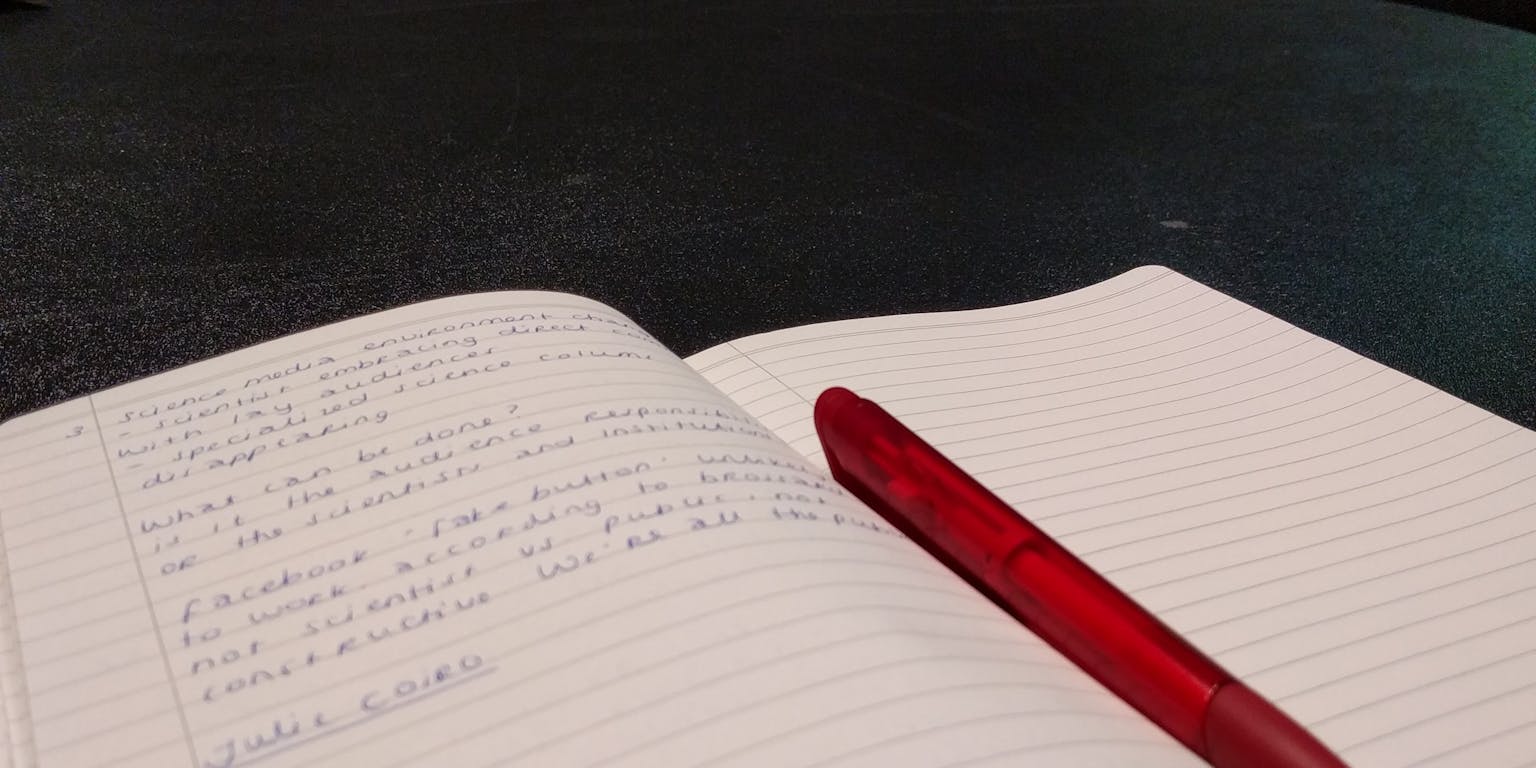 3
Science media environment
- scientist embracing direct
with lay audiences
- specialized science
disappearing
What can be done?
is it the audience
or the scientists and
facebook - fake button.
to work. according to
not scientist vs public, not
constructive We're all the
Julie